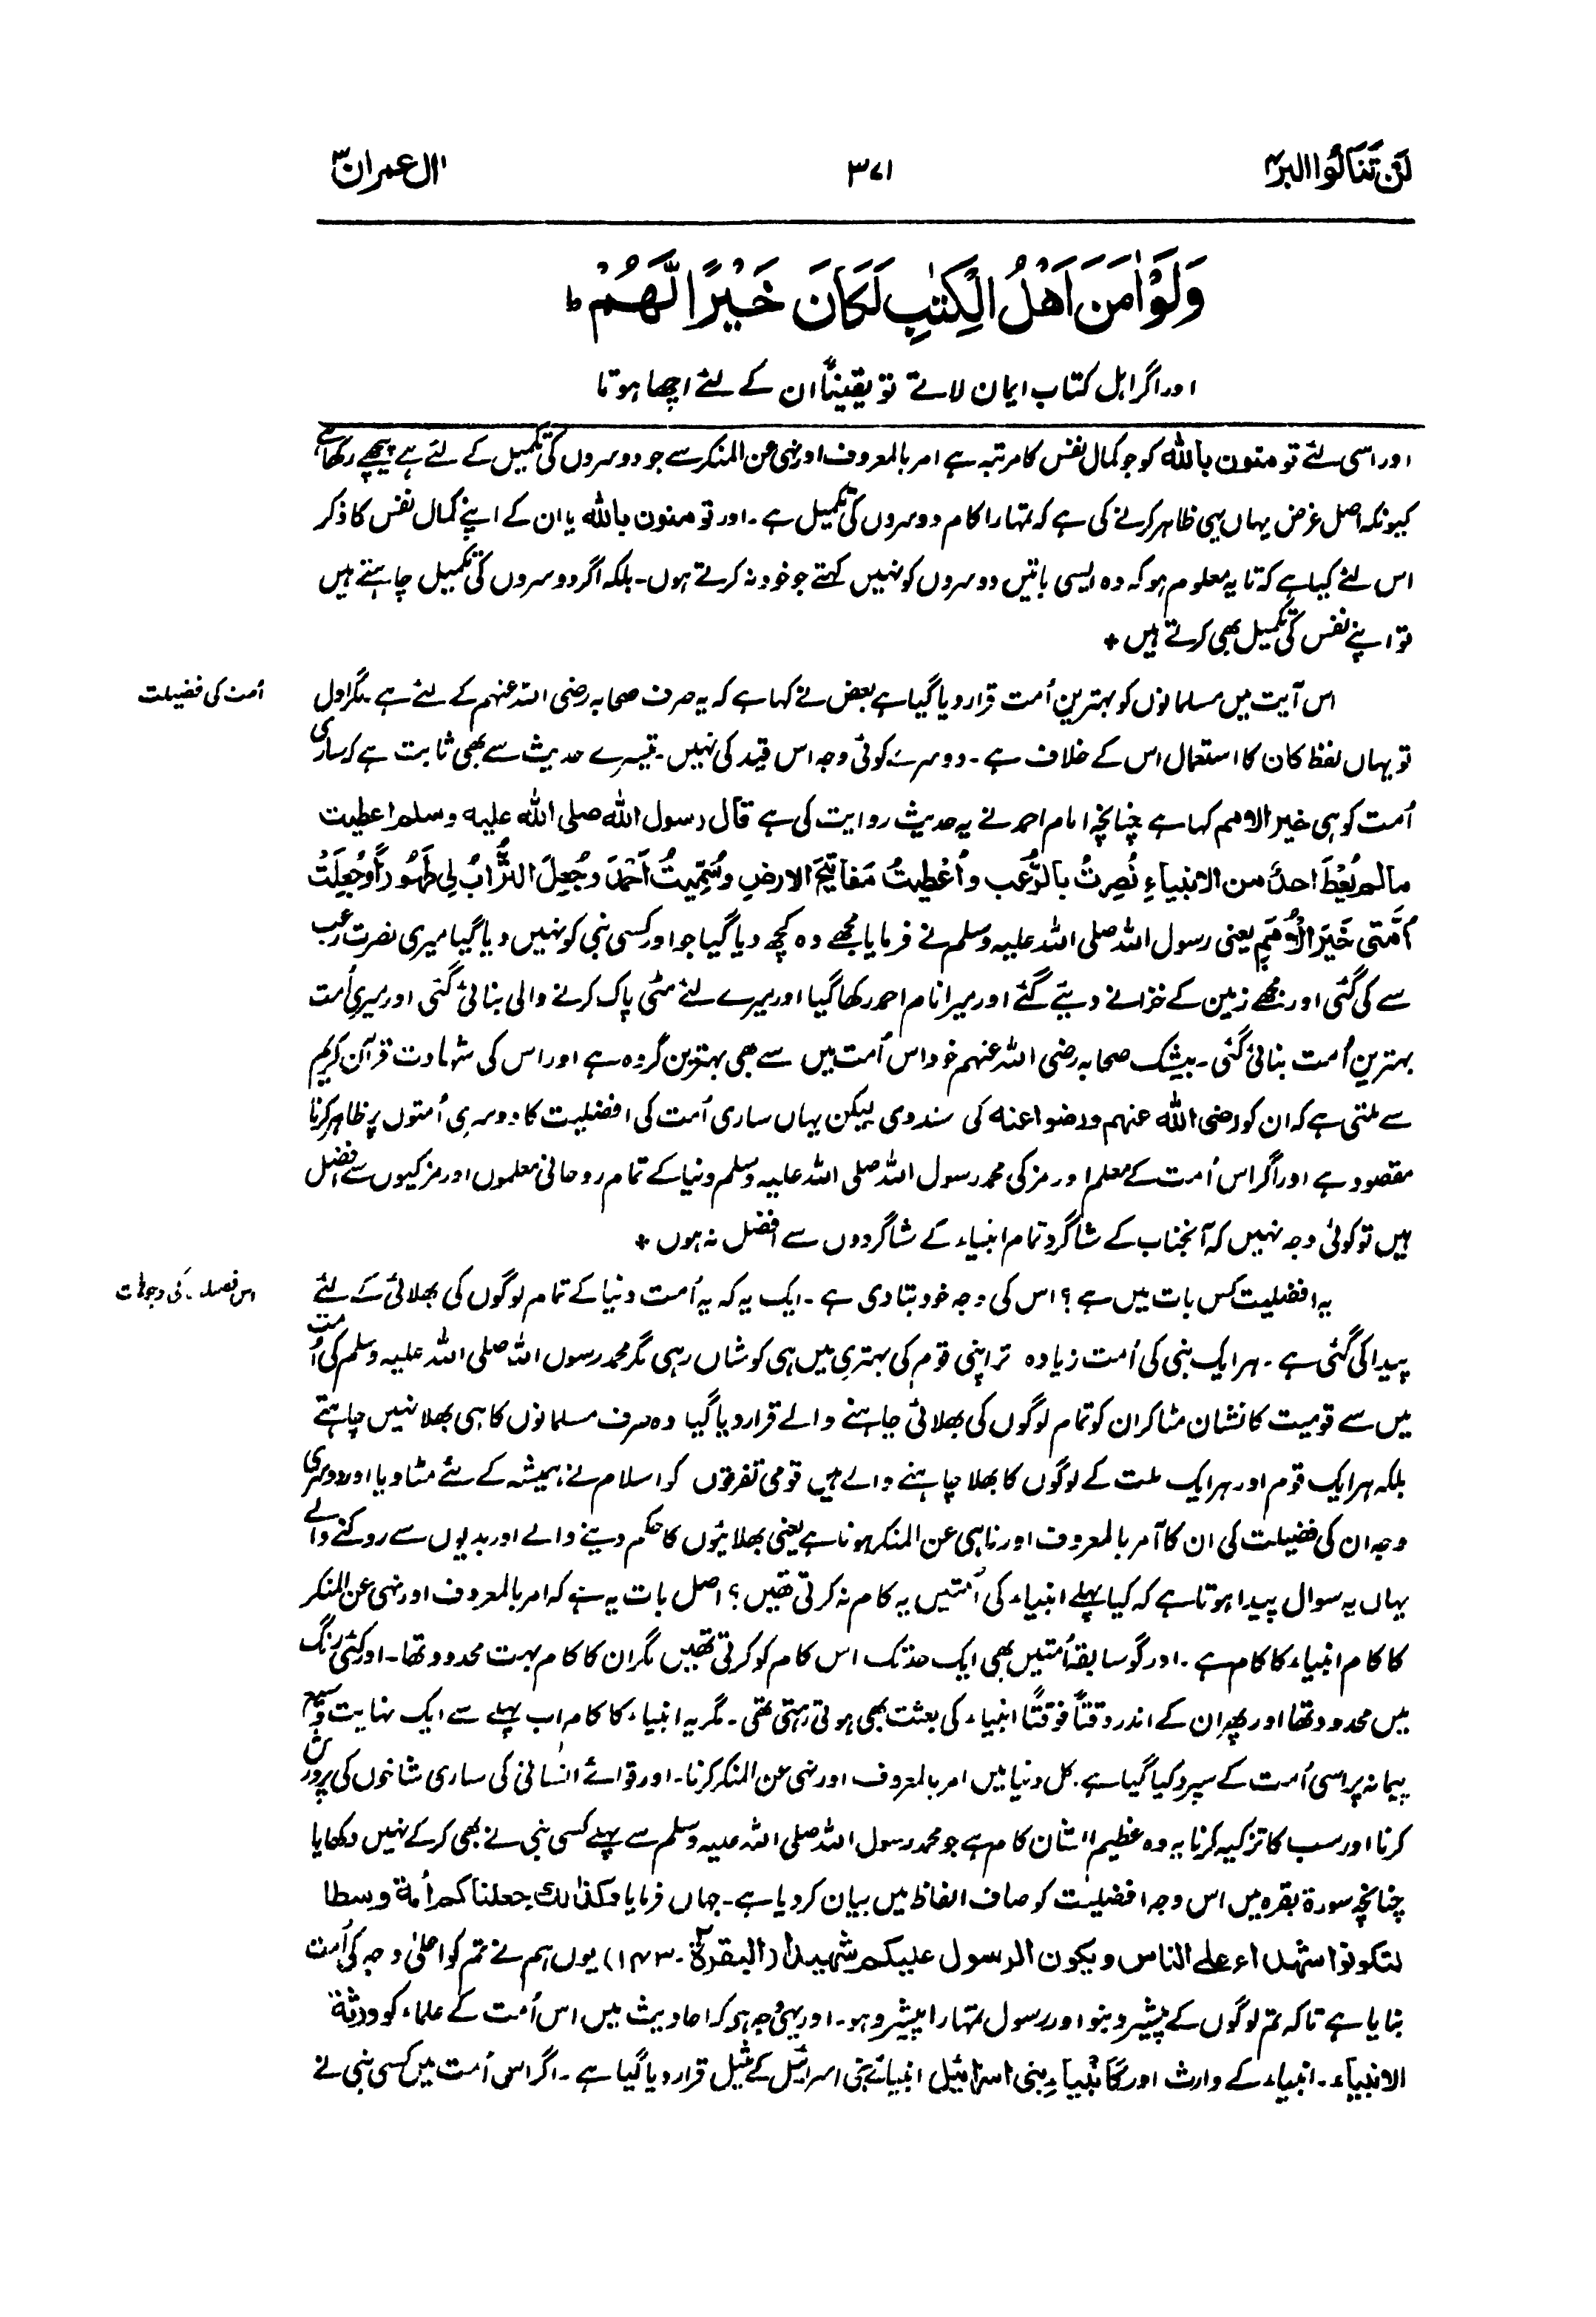 لَنْ تَنَالُوا البر ۴
۳۷۱
اٰل عمران ۳
وَلَوْ اٰمَنَ اَهْلُ الْكِتٰبِ لَكَانَ خَيْرًا لَّهُمْ ؕ
اور اگر اہل کتاب ایمان لاتے تو یقیناً ان کے لئے اچھا ہوتا
اور اسی لئے تومنون باللہ کو جو کمال نفس کا مرتبہ ہے امر بالمعروف اور نہی عن المنکر سے جو دوسروں کی تکمیل کے لئے ہے پیچھے رکھا ہے
کیونکہ اصل غرض یہاں یہی ظاہر کرنے کی ہے کہ تمہارا کام دوسروں کی تکمیل ہے۔ اور تومنون باللہ یا ان کے اپنے کمال نفس کا ذکر
اس لئے کیا ہے کہ تا یہ معلوم ہو کہ وہ ایسی باتیں دوسروں کو نہیں کہتے جو خود نہ کرتے ہوں۔ بلکہ اگر دوسروں کی تکمیل چاہتے ہیں
تو اپنے نفس کی تکمیل بھی کرتے ہیں +
اُمت کی فضیلت
اس آیت میں مسلمانوں کو بہترین اُمت قرار دیا گیا ہے بعض نے کہا ہے کہ یہ صرف صحابہ رضی اللہ عنہم کے لئے ہے۔ مگر اول
تو یہاں لفظ کان کا استعمال اس کے خلاف ہے۔ دوسرے کوئی وجہ اس قید کی نہیں۔ تیسرے حدیث سے بھی ثابت ہے کہ ساری
اُمت کو ہی خیر الامم کہا ہے چنانچہ امام احمد نے یہ حدیث روایت کی ہے قال رسول اللہ صلی اللہ علیہ وسلم اعطیت
مالم يُعْطَ احدٌ من الانبياءِ نُصِرتُ بالرُّعَب واُعْطِيتُ مَفاتيحَ الارضِ وسُمِّيتُ اَحْمَدَ وجُعِلَ التُّرَابُ لِی طَهُورًا وجُعِلَتْ
اُمَّتی خَيرَ الْاُمَمِ یعنی رسول اللہ صلی اللہ علیہ وسلم نے فرمایا مجھے وہ کچھ دیا گیا جو اور کسی نبی کو نہیں دیا گیا میری نصرت رعب
سے کی گئی اور مجھے زمین کے خزانے دیئے گئے اور میرا نام احمد رکھا گیا اور میرے لئے مٹی پاک کرنے والی بنائی گئی اور میری اُمت
بہترین اُمت بنائی گئی۔ بیشک صحابہ رضی اللہ عنہم خود اس اُمت میں سے بھی بہترین گروہ ہے اور اس کی شہادت قرآن کریم
سے ملتی ہے کہ ان کو رضی اللہ عنہم ورضوا عنہ کی سند دی لیکن یہاں ساری اُمت کی افضلیت کا دوسری اُمتوں پر ظاہر کرنا
مقصود ہے اور اگر اس اُمت کے معلم اور مزکی محمد رسول اللہ صلی اللہ علیہ وسلم دنیا کے تمام روحانی معلموں اور مزکیوں سے افضل
ہیں تو کوئی وجہ نہیں کہ آنجناب کے شاگرد تمام انبیاء کے شاگردوں سے افضل نہ ہوں +
اس کی وجوہات
یہ افضلیت کس بات میں ہے؟ اس کی وجہ خود بتا دی ہے۔ ایک یہ کہ یہ اُمت دنیا کے تمام لوگوں کی بھلائی کے لئے
پیدا کی گئی ہے۔ ہر ایک نبی کی اُمت زیادہ تر اپنی قوم کی بہتری میں ہی کوشاں رہی مگر محمد رسول اللہ صلی اللہ علیہ وسلم کی اُمت
میں سے قومیت کا نشان مٹا کر ان کو تمام لوگوں کی بھلائی چاہنے والے قرار دیا گیا وہ صرف مسلمانوں کا ہی بھلا نہیں چاہتے
بلکہ ہر ایک قوم اور ہر ایک ملت کے لوگوں کا بھلا چاہنے والے ہیں قومی تفرقوں کو اسلام نے ہمیشہ کے لئے مٹا دیا اور دوسری
وجہ ان کی فضیلت کی ان کا آمر بالمعروف اور ناہی عن المنکر ہونا ہے یعنی بھلائیوں کا حکم دینے والے اور بدیوں سے روکنے والے
یہاں یہ سوال پیدا ہوتا ہے کہ کیا پہلے انبیاء کی اُمتیں یہ کام نہ کرتی تھیں؟ اصل بات یہ ہے کہ امر بالمعروف اور نہی عن المنکر
کا کام انبیاء کا کام ہے۔ اور گو سابقہ اُمتیں بھی ایک حد تک اس کام کو کرتی تھیں مگر ان کا کام بہت محدود تھا۔ اور کئی رنگ
میں محدود تھا اور پھر ان کے اندر وقتاً فوقتاً انبیاء کی بعثت بھی ہوتی رہتی تھی۔ مگر یہ انبیاء کا کام اب پہلے سے ایک نہایت وسیع
پیمانہ پر اسی اُمت کے سپرد کیا گیا ہے۔ کل دنیا میں امر بالمعروف اور نہی عن المنکر کرنا۔ اور قوائے انسانی کی ساری شاخوں کی پرورش
کرنا اور سب کا تزکیہ کرنا یہ وہ عظیم الشان کام ہے جو محمد رسول اللہ صلی اللہ علیہ وسلم سے پہلے کسی نبی نے بھی کر کے نہیں دکھایا
چنانچہ سورۃ بقرہ میں اس وجہ افضلیت کو صاف الفاظ میں بیان کر دیا ہے۔ جہاں فرمایا وکذالک جعلناکم اُمة وسطا
لتکونوا شهداء علی الناس ویکون الرسول علیکم شهیدا (البقرة ۲۔ ۱۴۳) یوں ہم نے تم کو اعلیٰ درجہ کی اُمت
بنایا ہے تاکہ تم لوگوں کے پیشرو بنو اور رسول تمہارا پیشرو ہو۔ اور یہی وجہ ہے کہ احادیث میں اس اُمت کے علماء کو ورثة
الانبیاء۔ انبیاء کے وارث اور کَاَنبِیاءِ بنی اسرائیل انبیائے بنی اسرائیل کے مثیل قرار دیا گیا ہے۔ اگر اس اُمت میں کسی نبی نے